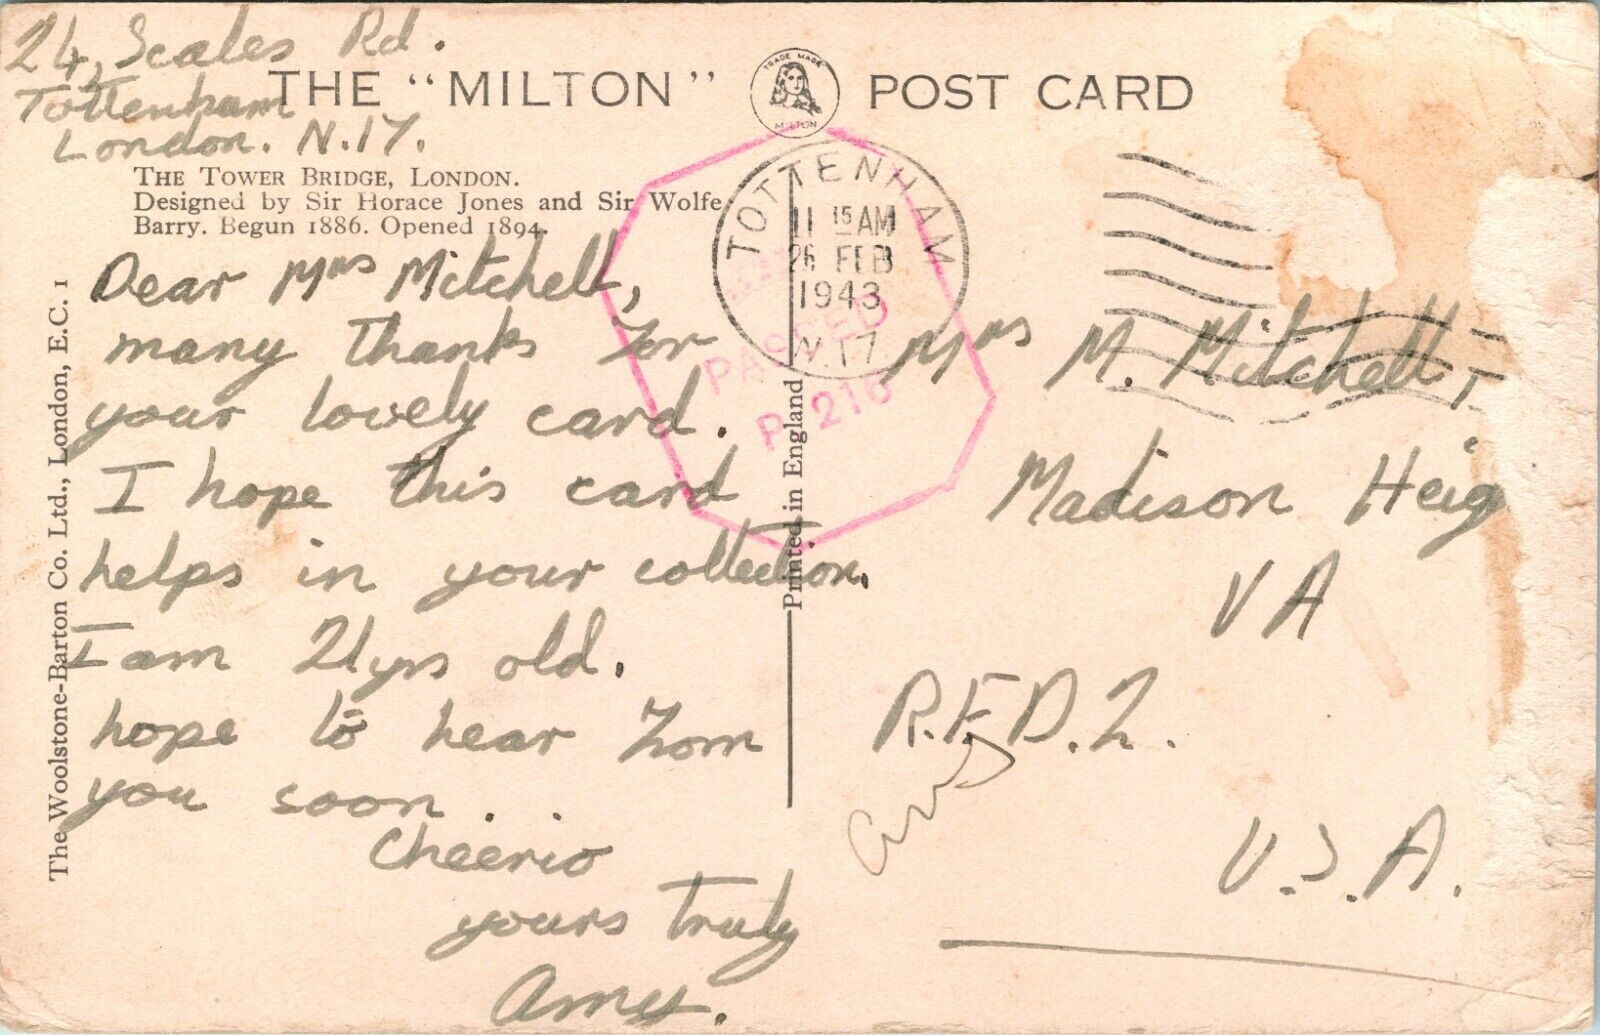 24, Scales Rd.
Tottenham
London. N.17.
THE "MILTON" POST CARD
TRADE MARK
MILTON
THE TOWER BRIDGE, LONDON.
Designed by Sir Horace Jones and Sir Wolfe
Barry. Begun 1886. Opened 1894.
TOTTENHAM
11 15 AM
26 FEB
1943
N.17
PASSED
P. 216
Dear Mrs Mitchell,
many thanks for
your lovely card.
I hope this card
helps in your collection.
I am 21yrs old.
hope to hear from
you soon.
Cheerio
yours truly
Amy.
The Woolstone-Barton Co. Ltd., London, E.C. 1
Printed in England
Mrs M. Mitchell,
Madison Heig
VA
R.F.D.2.
U.S.A.